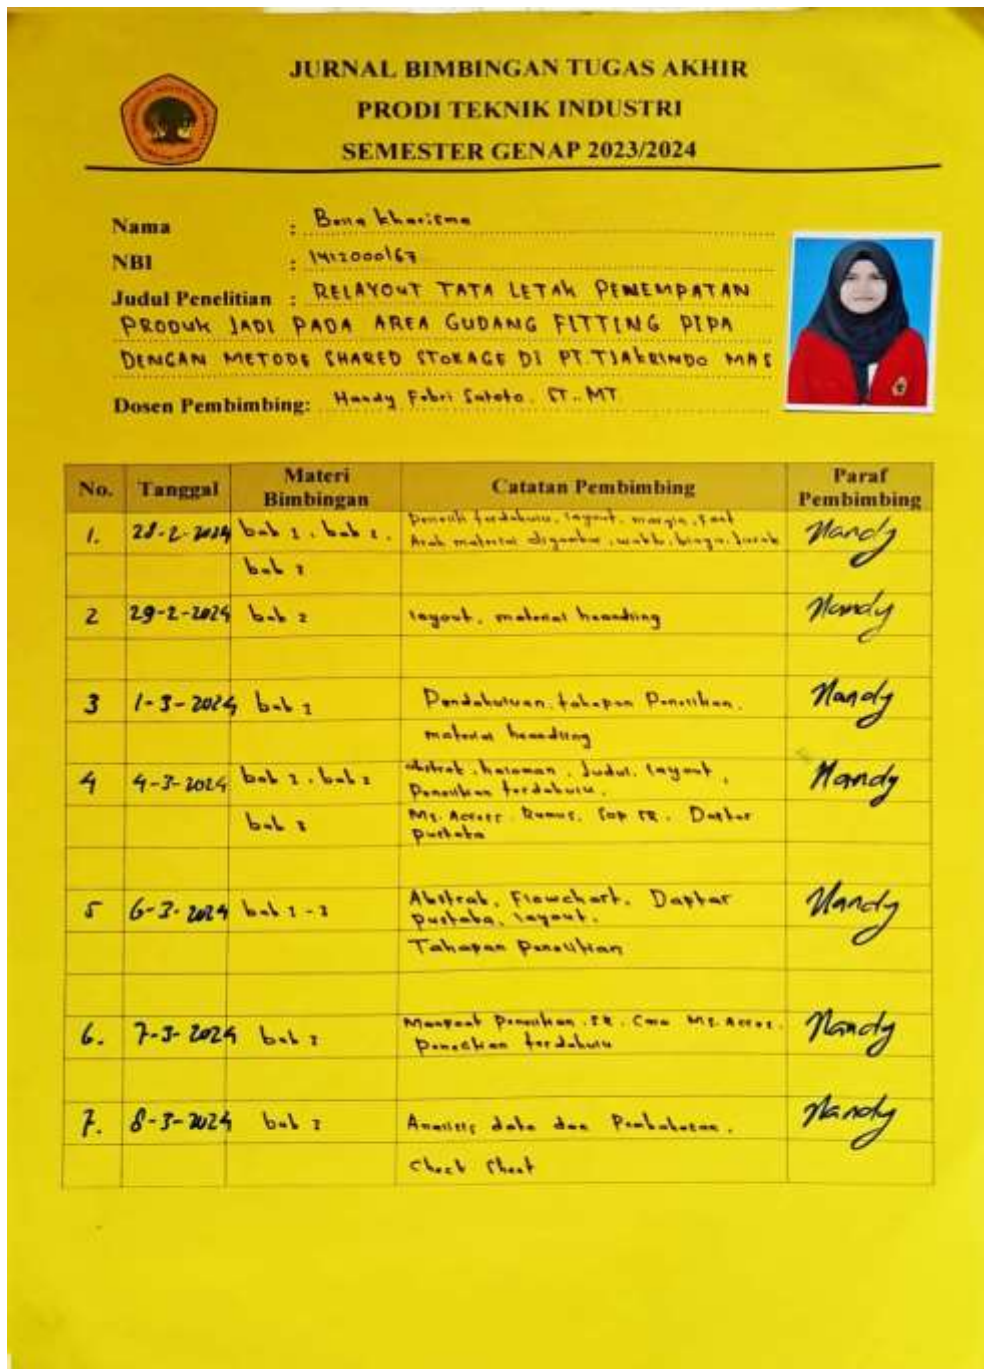 JURNAL BIMBINGAN TUGAS AKHIR
PRODI TEKNIK INDUSTRI
SEMESTER GENAP 2023/2024
Nama : Bona Kharisma
NBI : 1412000167
Judul Penelitian : RELAYOUT TATA LETAK PENEMPATAN
PRODUK JADI PADA AREA GUDANG FITTING PIPA
DENGAN METODE SHARED STORAGE DI PT. TJAKRINDO MAS
Dosen Pembimbing: Handy Febri Satoto. ST., MT
No. Tanggal Materi Bimbingan Catatan Pembimbing Paraf Pembimbing
1. 28-2-2024 terdahulu, layout, margin, font
Arah material digambar, waktu, biaya, jarak
bab
2 29-2-2024 bab 2 layout, material
3 1-3-2024 bab Pendahuluan, tahapan Penelitian,
material
4 4-3-2024 bab abstrak, halaman, Judul, layout,
Penelitian terdahulu,
bab 3 Rumus, Daftar
pustaka
5 6-3-2024 bab 1-3 Abstrak, Flowchart, Daptar
pustaka, layout,
Tahapan penelitian
6. 7-3-2024 bab Manfaat Penelitian,
Penelitian terdahulu
7. 8-3-2024 bab Analisis data dan
Check Sheet